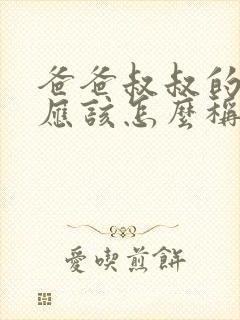 爸爸叔叔的
應該怎麼稱
愛喫煎餅